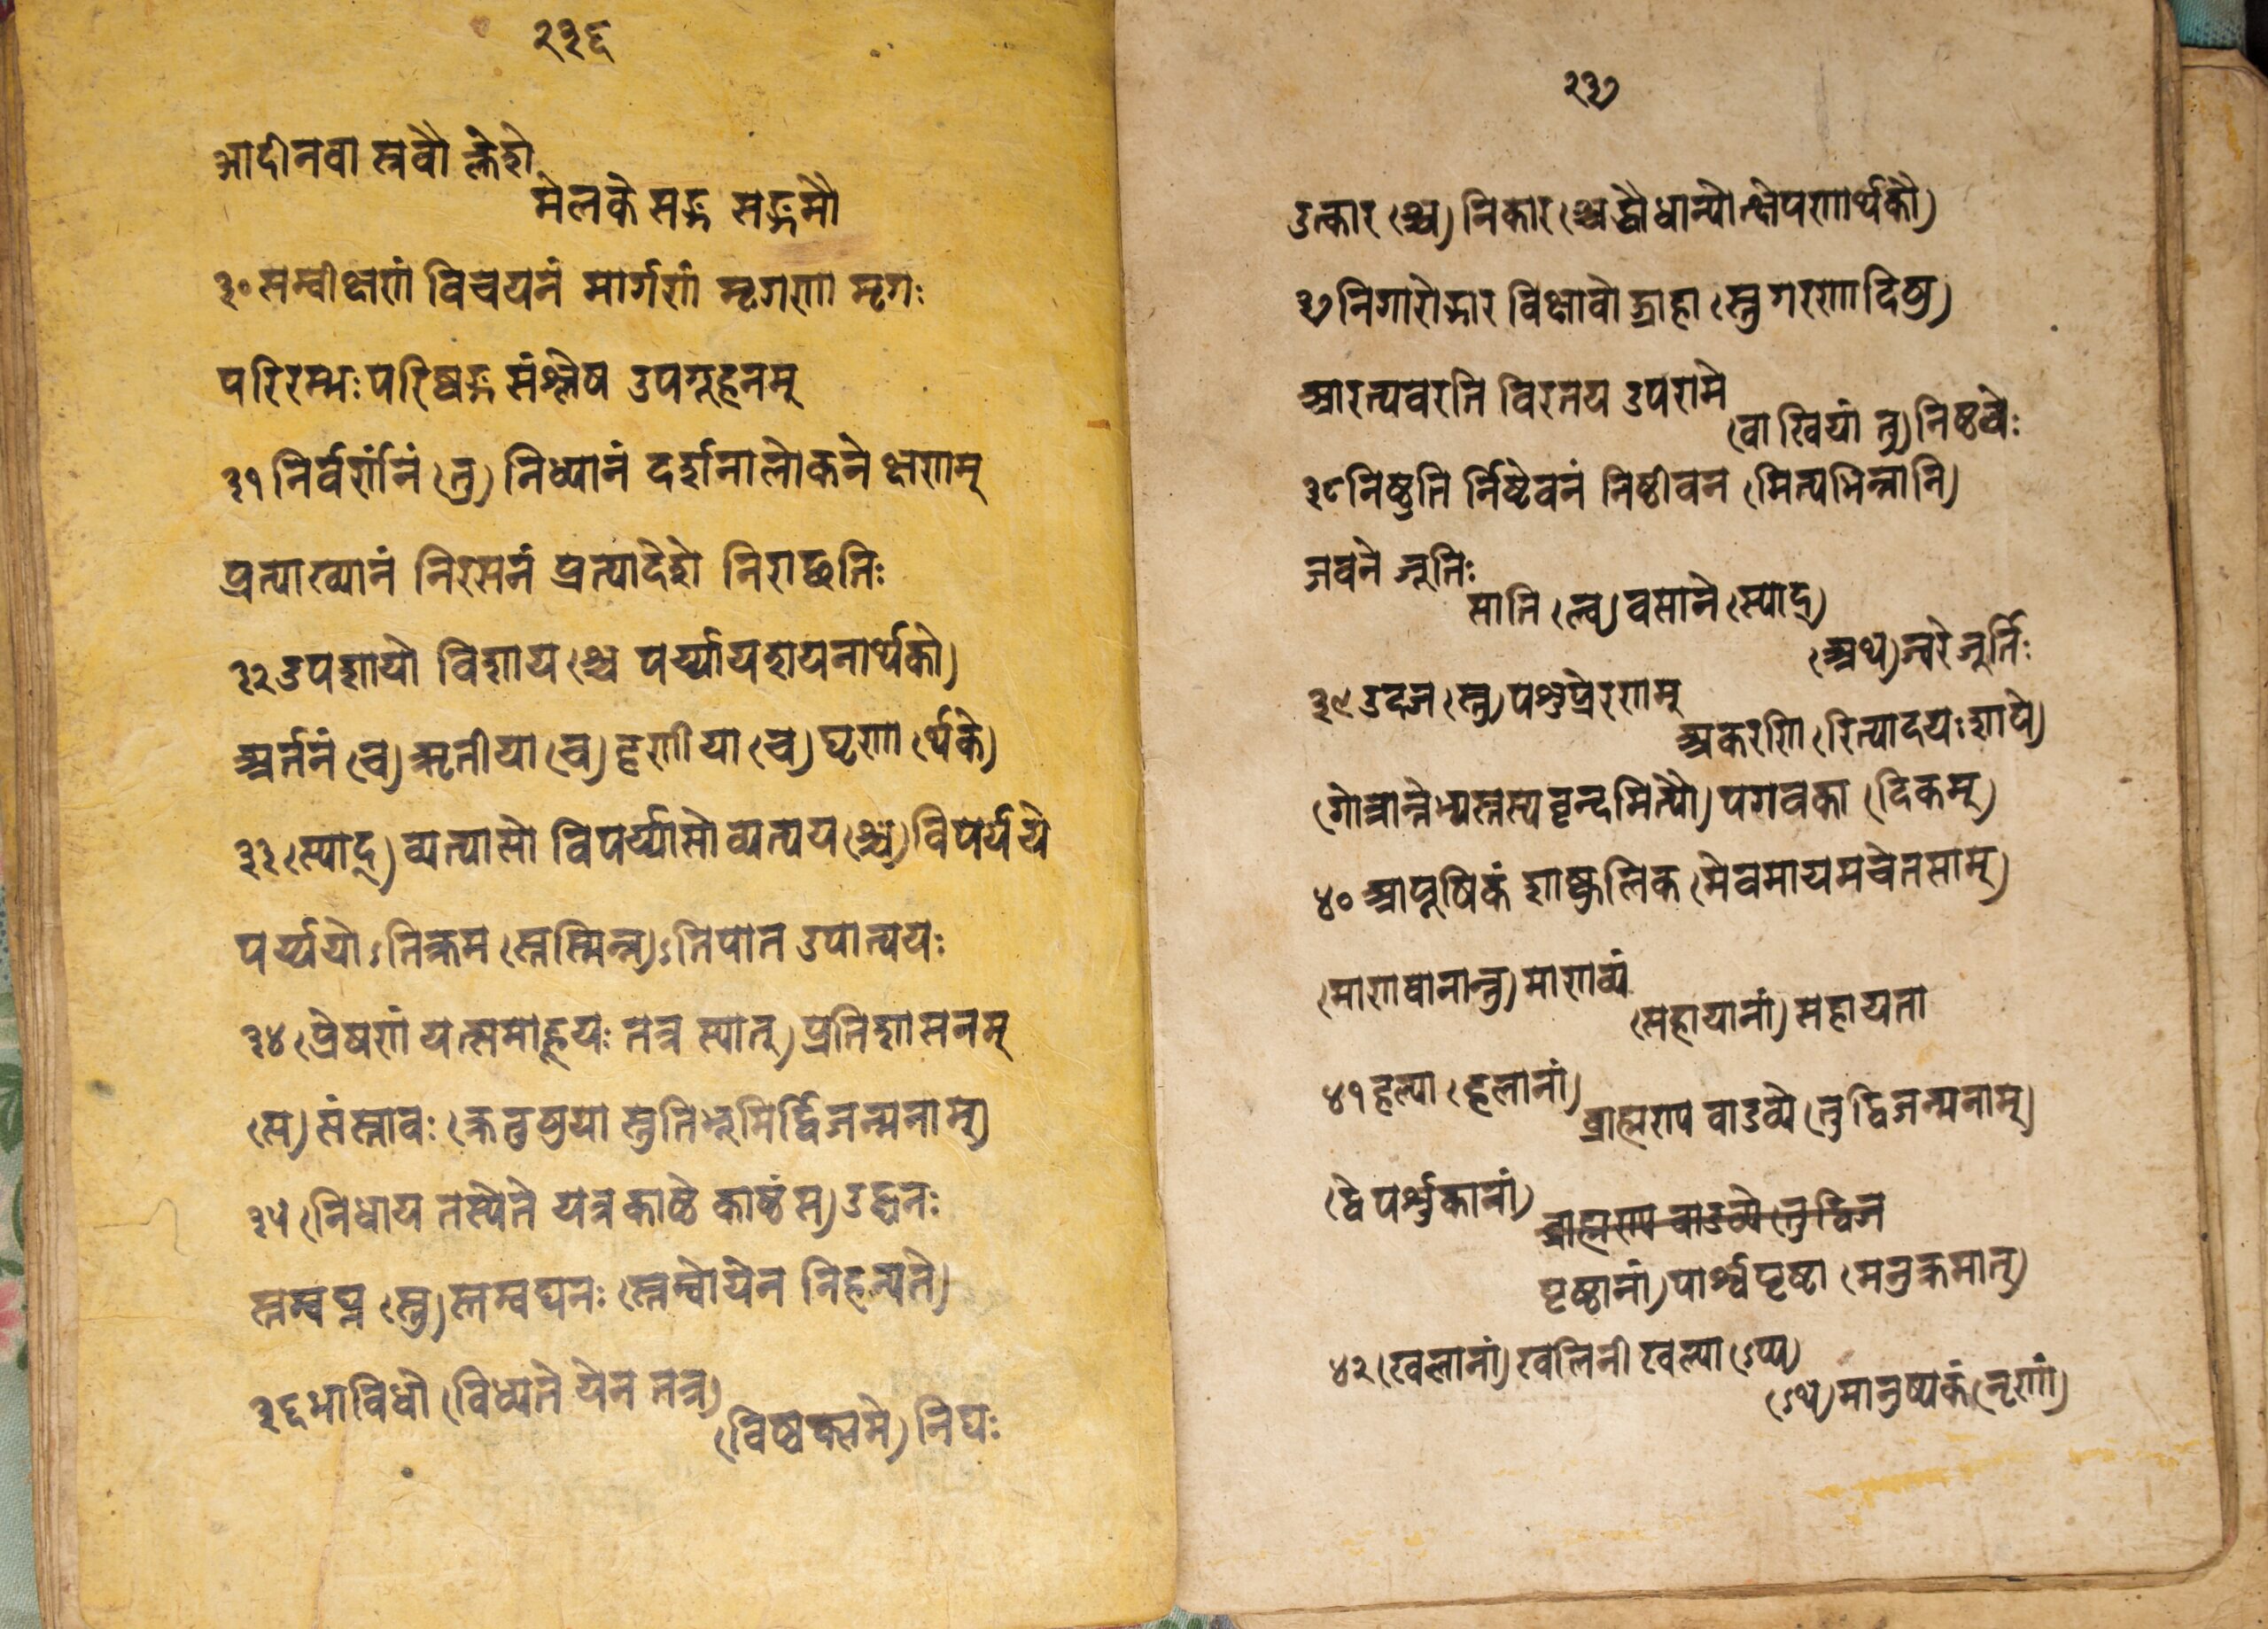 २३६
आदीनवास्रवौ क्लेशे
मेलके सङ्ग सङ्गमौ
३० सम्वीक्षणं विचयनं मार्गणं मृगणा मृगः
परिरम्भः परिष्वङ्ग संश्लेष उपगूहनम्
३१ निर्वर्णनं (तु) निध्यानं दर्शनालोकने क्षणम्
प्रत्याख्यानं निरसनं प्रत्यादेशो निराकृतिः
३२ उपशायो विशाय (श्च पर्य्यायशयनार्थकौ)
अर्तनं (च) ऋतीया (च) हृणीया (च) घृणा (र्थके)
३३ (स्याद्) व्यत्यासो विपर्य्यासो व्यत्यय (श्च) विपर्यये
पर्य्ययोऽतिक्रम (स्तस्मिन्न)ऽतिपात उपात्ययः
३४ (प्रेषणं यत्समाहूयः तत्र स्यात्) प्रतिशासनम्
(स) संस्तावः (क्रतुषु या स्तुतिभूमिर्द्विजन्मनाम्)
३५ (निधाय तस्यते यत्र काष्ठे काष्ठं स) उद्घनः
स्तम्बघ्न (स्तु) स्तम्बघनः (स्तम्बो येन निहन्यते)
३६ भाविधो (विध्यते येन तत्र)
(विष्वक्समे) निघः
२३७
उत्कार (श्च) निकार (श्च द्वौ धान्योत्क्षेपणार्थकौ)
३७ निगारोद्गार विक्षावोद्ग्राहा (स्तु गरणादिषु)
आरत्यवरति विरतय उपरामे
(वास्त्रियां तु) निष्ठेवः
३८ निष्ठ्युति र्निष्ठेवनं निष्ठीवन (मित्यभिन्नानि)
जवने जूतिः
साति (स्त्व) वसाने (स्याद्)
(अथ) ज्वरे जूर्तिः
३९ उदज (स्तु) पशुप्रेरणम्
अकरणि (रित्यादयः शापे)
(गोत्रान्तेभ्यस्तस्य वृन्दमित्यौ) पगवका (दिकम्)
४० आपूपिकं शाष्कुलिक (मेवमाद्यमचेतसाम्)
(माणवानान्तु) माणव्यं
(सहायानां) सहायता
४१ हल्या (हलानां)
ब्राह्मण्य वाडव्ये (तु द्विजन्मनाम्)
(द्वे पर्शुकानां)
ब्राह्मण्य वाडव्ये (तु द्विज
पृष्ठानां) पार्श्वपृष्ठ्य (मनुक्रमात्)
४२ (खलानां) खलिनी खल्या (ऽप्य)
(ऽथ) मानुष्यकं (नृणां)